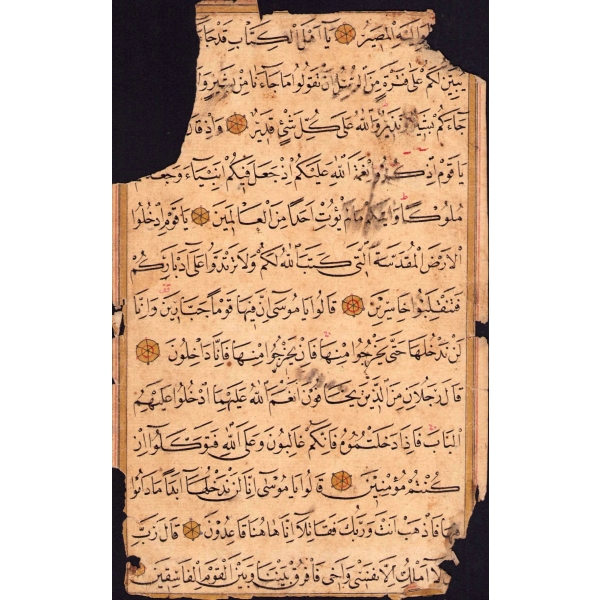 الْمَصِيرُ يَا اَهْلَ الْكِتَابِ قَدْ جَاءَ
يُبَيِّنُ لَكُمْ عَلَى فَتْرَةٍ مِنَ الرُّسُلِ اَنْ تَقُولُوا مَا جَاءَنَا مِنْ بَشِيرٍ وَ
جَاءَكُمْ بَشِيرٌ وَنَذِيرٌ وَاللّٰهُ عَلَى كُلِّ شَئٍْ قَدِيرٌ وَاِذْ قَا
يَا قَوْمِ اذْكُرُوا نِعْمَةَ اللّٰهِ عَلَيْكُمْ اِذْ جَعَلَ فِيكُمْ اَنْبِيَاءَ وَجَعَلَكُمْ
مُلُوكًا وَاٰتٰيكُمْ مَا لَمْ يُؤْتِ اَحَدًا مِنَ الْعَالَمِينَ يَا قَوْمِ ادْخُلُوا
الْاَرْضَ الْمُقَدَّسَةَ الَّتِي كَتَبَ اللّٰهُ لَكُمْ وَلَا تَرْتَدُّوا عَلَى اَدْبَارِكُمْ
فَتَنْقَلِبُوا خَاسِرِينَ قَالُوا يَا مُوسَى اِنَّ فِيهَا قَوْمًا جَبَّارِينَ وَاِنَّا
لَنْ نَدْخُلَهَا حَتَّى يَخْرُجُوا مِنْهَا فَاِنْ يَخْرُجُوا مِنْهَا فَاِنَّا دَاخِلُونَ
قَالَ رَجُلَانِ مِنَ الَّذِينَ يَخَافُونَ اَنْعَمَ اللّٰهُ عَلَيْهِمَا ادْخُلُوا عَلَيْهِمُ
الْبَابَ فَاِذَا دَخَلْتُمُوهُ فَاِنَّكُمْ غَالِبُونَ وَعَلَى اللّٰهِ فَتَوَكَّلُوا اِنْ
كُنْتُمْ مُؤْمِنِينَ قَالُوا يَا مُوسَى اِنَّا لَنْ نَدْخُلَهَا اَبَدًا مَا دَامُوا
فِيهَا فَاذْهَبْ اَنْتَ وَرَبُّكَ فَقَاتِلَا اِنَّا هَاهُنَا قَاعِدُونَ قَالَ رَبِّ
لَا اَمْلِكُ اِلَّا نَفْسِي وَاَخِي فَافْرُقْ بَيْنَنَا وَبَيْنَ الْقَوْمِ الْفَاسِقِينَ